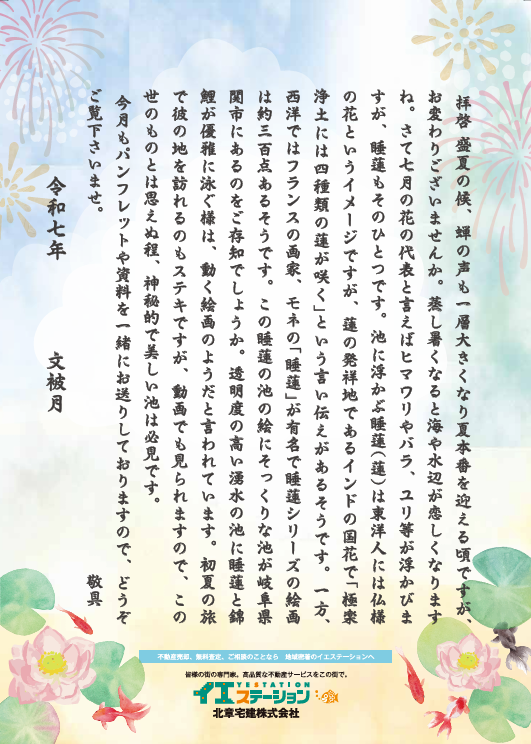 拝啓 盛夏の候、蝉の声も一層大きくなり夏本番を迎える頃ですが、
お変わりございませんか。蒸し暑くなると海や水辺が恋しくなります
ね。さて七月の花の代表と言えばヒマワリやバラ、ユリ等が浮かびま
すが、睡蓮もそのひとつです。池に浮かぶ睡蓮(蓮)は東洋人には仏様
の花というイメージですが、蓮の発祥地であるインドの国花で「極楽
浄土には四種類の蓮が咲く」という言い伝えがあるそうです。一方、
西洋ではフランスの画家、モネの「睡蓮」が有名で睡蓮シリーズの絵画
は約三百点あるそうです。この睡蓮の池の絵にそっくりな池が岐阜県
関市にあるのをご存知でしょうか。透明度の高い湧水の池に睡蓮と錦
鯉が優雅に泳ぐ様は、動く絵画のようだと言われています。初夏の旅
で彼の地を訪れるのもステキですが、動画でも見られますので、この
世のものとは思えぬ程、神秘的で美しい池は必見です。
今月もパンフレットや資料を一緒にお送りしておりますので、どうぞ
ご覧下さいませ。
敬具
令和七年 文披月
不動産売却、無料査定、ご相談のことなら 地域密着のイエステーションへ
皆様の街の専門家。高品質な不動産サービスをこの街で。
YESTATION
イエステーション
北章宅建株式会社